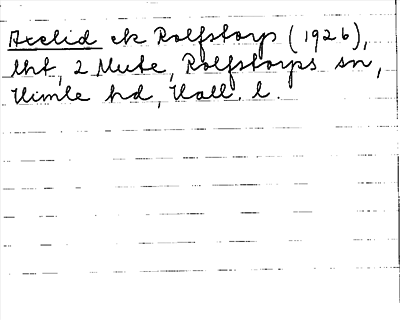 Axelid ek Rolfstorp (1926),
lht, 2 Mtbe, Rolfstorps sn,
Himle hd, Hall. l.